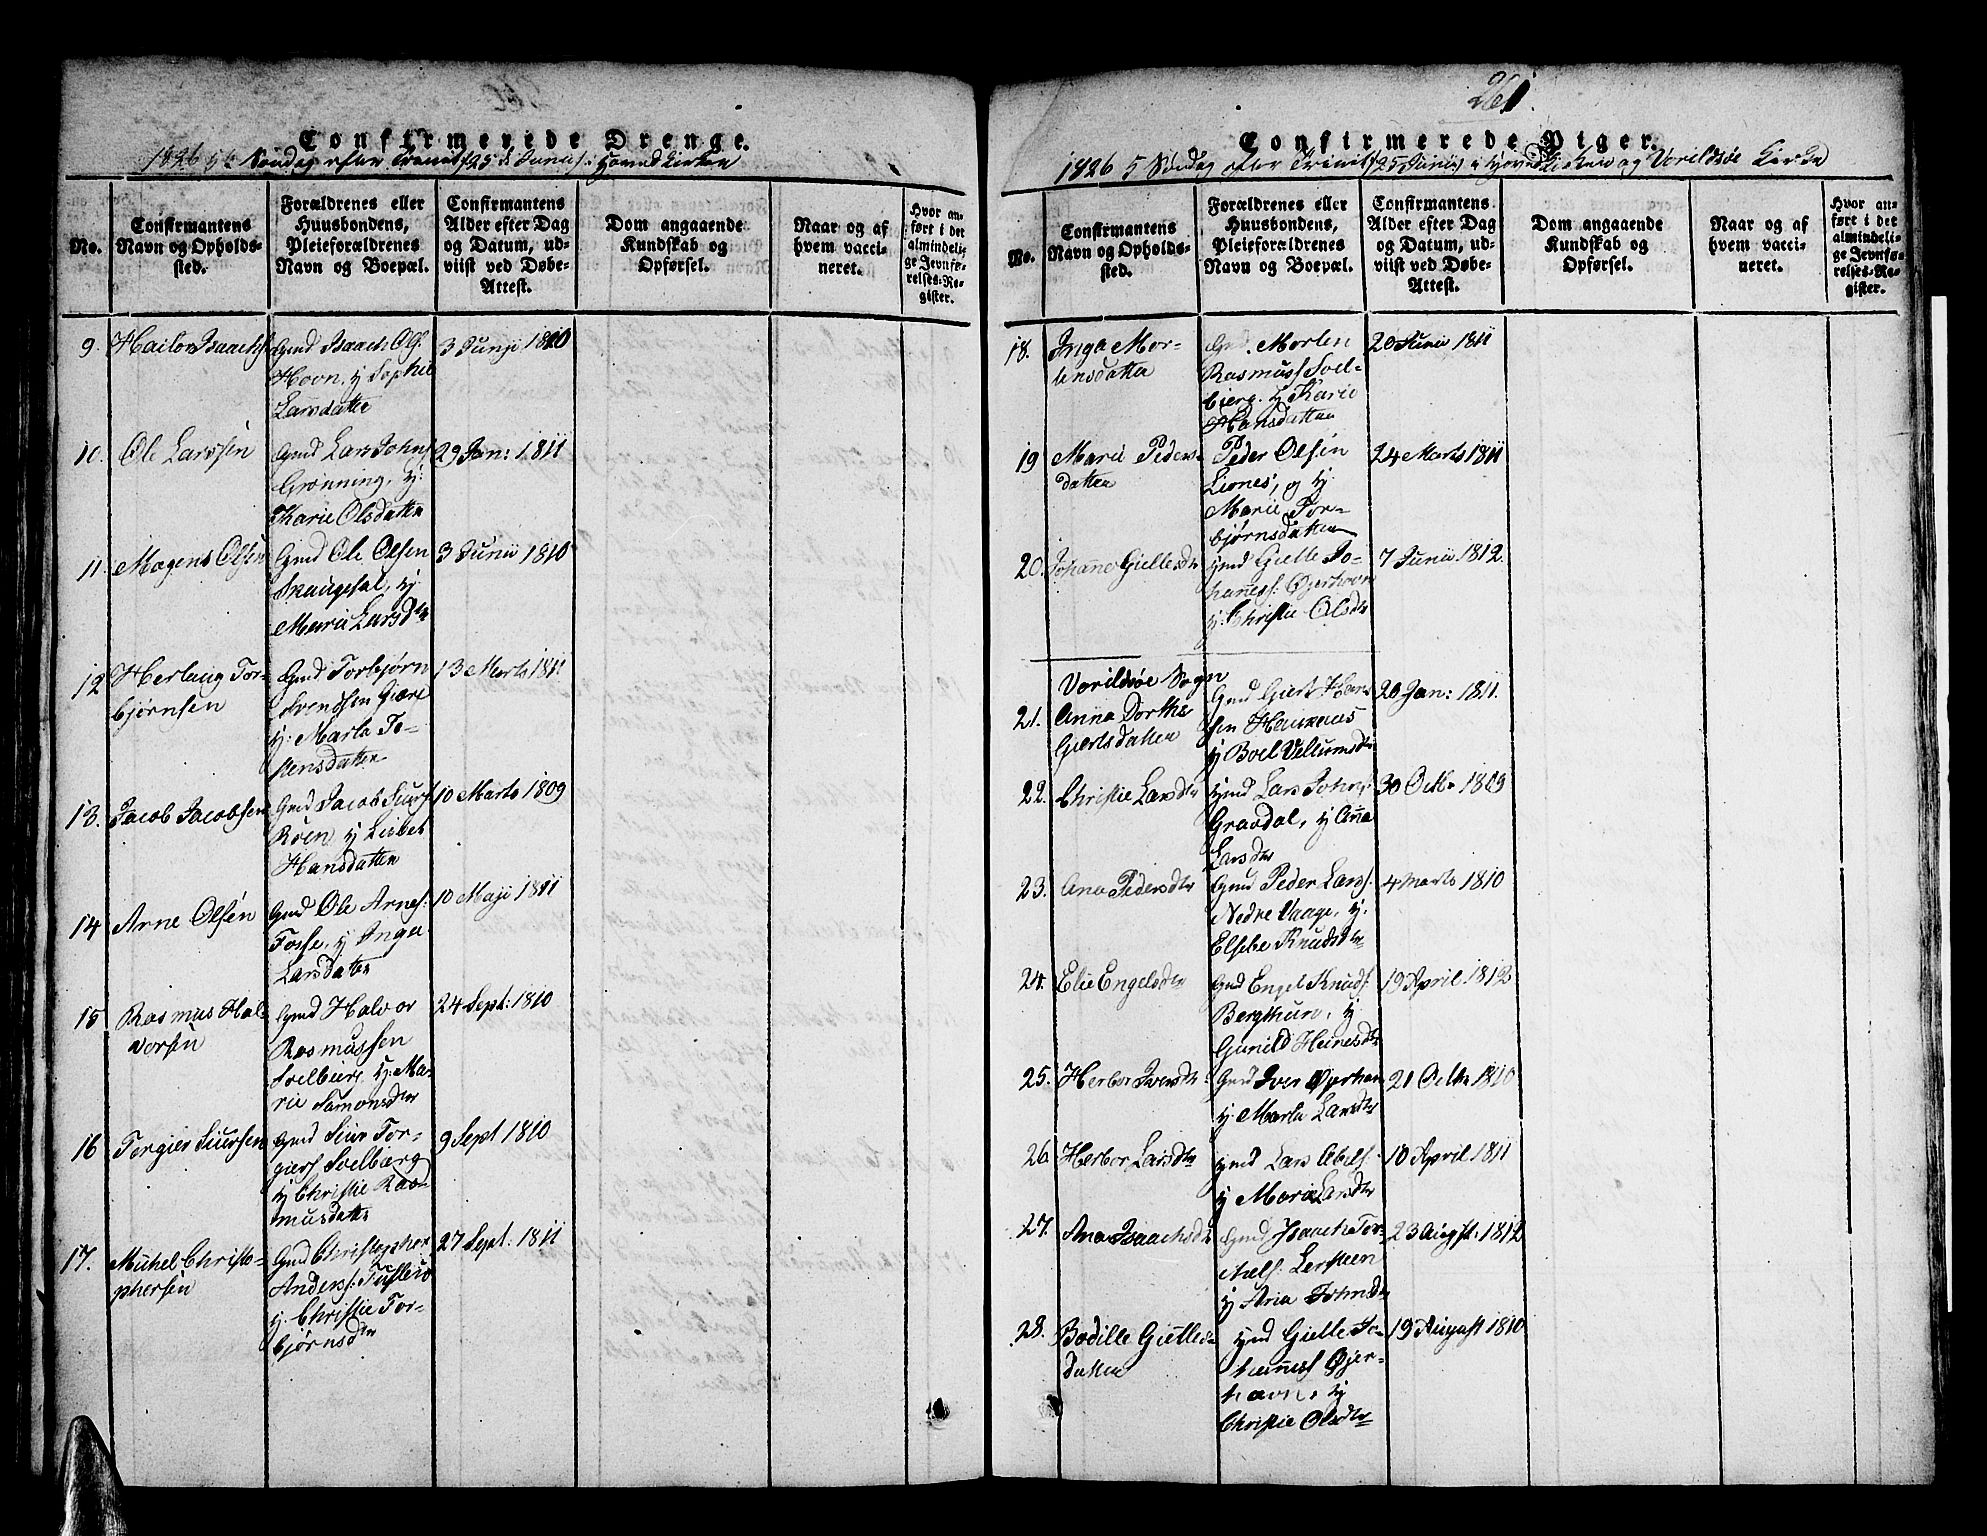 Confirmerede Drenge.
1826 5te Søndag efter Trinit: (25de Junii) i Hoved Kirken
No.
Confirmantens
Navn og Opholds-
sted.
Forældrenes eller
Huusbondens,
Pleieforældrenes
Navn og Boepæl.
Confirmantens
Alder efter Dag
og Datum, ud-
viist ved Døbe-
Attest.
Dom angaaende
Kundskab og
Opførsel.
Naar og af
hvem vacci-
neret.
Hvor an-
ført i det
almindeli-
ge Jevnfø-
relses-Re-
gister.
9. Hailor Isaachs:
Gmd Isaach Ols:
Hovn, y Sophie
Larsdatter
3 Junji 1810
10. Ole Larssen
Gmd Lars Johns:
Grønning, y:
Karie Olsdatter
29 Jan: 1811
11. Mogens Olsen
Gmd Ole Olsen
y
Marie Larsdtr
3 Junii 1810
12 Herlaug Tor-
bjørnsen
Gmd Torbjørn
Svendsen Giære
y: Marta To-
stensdatter
13 Marts 1811
13. Jacob Jacobsen
Gmd Jacob Siurs:
Røen y Lisbet
Hansdatter
10 Marts 1809
14 Arne Olsen
Gmd Ole Arnes:
Fosse, y Inga
Larsdatter
10 Maji 1811
15 Rasmus Hal-
vorsen
Gmd Halvor
Rasmussen
Soelbierg y: Ma-
rie Samonsdtr
24 Sept: 1810
16 Torgier Siursen
Gmd Siur Tor-
giers Soelbærg
y Christie Ras-
musdattr
9 Sept 1810
17. Michel Christo-
phersen
Gmd Christopher
Anders:
y: Christie Tor-
bjørnsdtr
27 Sept: 1811
261
Confirmerede Piger.
1826 5 Søndag efter Trinit (25 Junii) i Hoved Kirken og Varildsøe Kirke
No.
Confirmantens
Navn og Opholds-
sted.
Forældrenes eller
Huusbondens,
Pleieforældrenes
Navn og Boepæl.
Confirmantens
Alder efter Dag
og Datum, ud-
viist ved Døbe-
Attest.
Dom angaaende
Kundskab og
Opførsel.
Naar og af
hvem vacci-
neret.
Hvor an-
ført i det
almindeli-
ge Jevnfø-
relses-Re-
gister.
18. Inga Mor-
tensdatter
Gmd. Morten
Rasmuss Soel-
bierg. y Karie
Hansdatter
20 Junii 1811
19 Marie Peders-
datter
Peder Olsen
Liones, og y.
Marie Tor-
bjørnsdatter
24 Marts 1811
20. Johanne Gielles dtr
Gmd Gielle Jo-
hanness: Øjerhavn
y: Christie Olsdtr
7 Junii 1812.
Varildsøe Sogn
21. Anna Dorthe
Giertsdatter
Gmd Giert Han-
sen Haukanas
y Boel Vellumsdtr
20 Jan: 1811.
22. Christie Larsdtr
Gmd Lars Johns:
Gravdal, y Anna
Larsdtr
30 Octbr 1809
23. Ana Pedersdtr
Gmd Peder Lars:
Nedre Vaage, y.
Elsebe Knudsdtr
4 Marts 1810
24. Elie Engelsdtr
Gmd Engel Knuds:
Bergthun, y.
Gunild Heinesdtr
19 April 1812
25. Herbor Iversdtr
Gmd Iver Øyerhavn
y: Marta Larsdtr
21 Octbr 1810
26. Herbor Larsdtr
Gmd Lars Abels:
y Marie Larsdtr
10 April 1811
27. Ana Isaachsdtr
Gmd Isaach Tor-
kels: Lersteen
y Ana Johnsdtr
23 Augst: 1812
28. Bodille Gielles-
datter
Gmd Gielle Jo-
hanness Øjer-
havn, y
Christie Olsdtr
19 August 1810